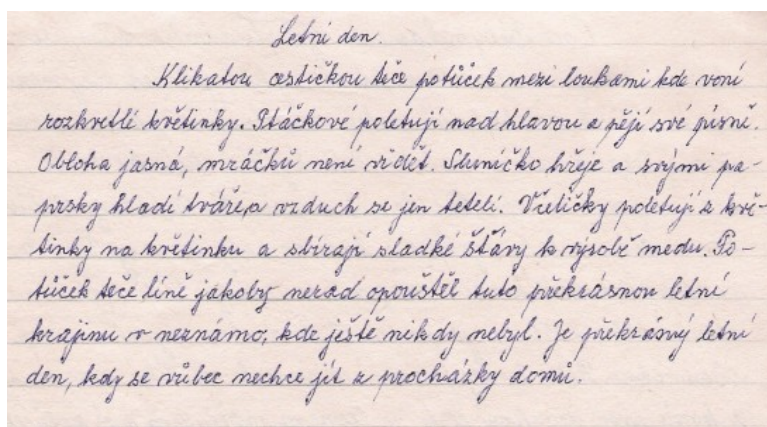 Letní den.
Klikatou cestičkou teče potůček mezi loukami kde voní
rozkvetlé květinky. Ptáčkové poletují nad hlavou a pějí své písně.
Obloha jasná, mráčků není vidět. Sluníčko hřeje a svými pa-
prsky hladí tváře, a vzduch se jen tetelí. Včeličky poletují z kvě-
tinky na květinku a sbírají sladké šťávy k výrobě medu. Po-
tůček teče líně jakoby nerad opouštěl tuto překrásnou letní
krajinu v neznámo, kde ještě nikdy nebyl. Je překrásný letní
den, kdy se vůbec nechce jít z procházky domů.